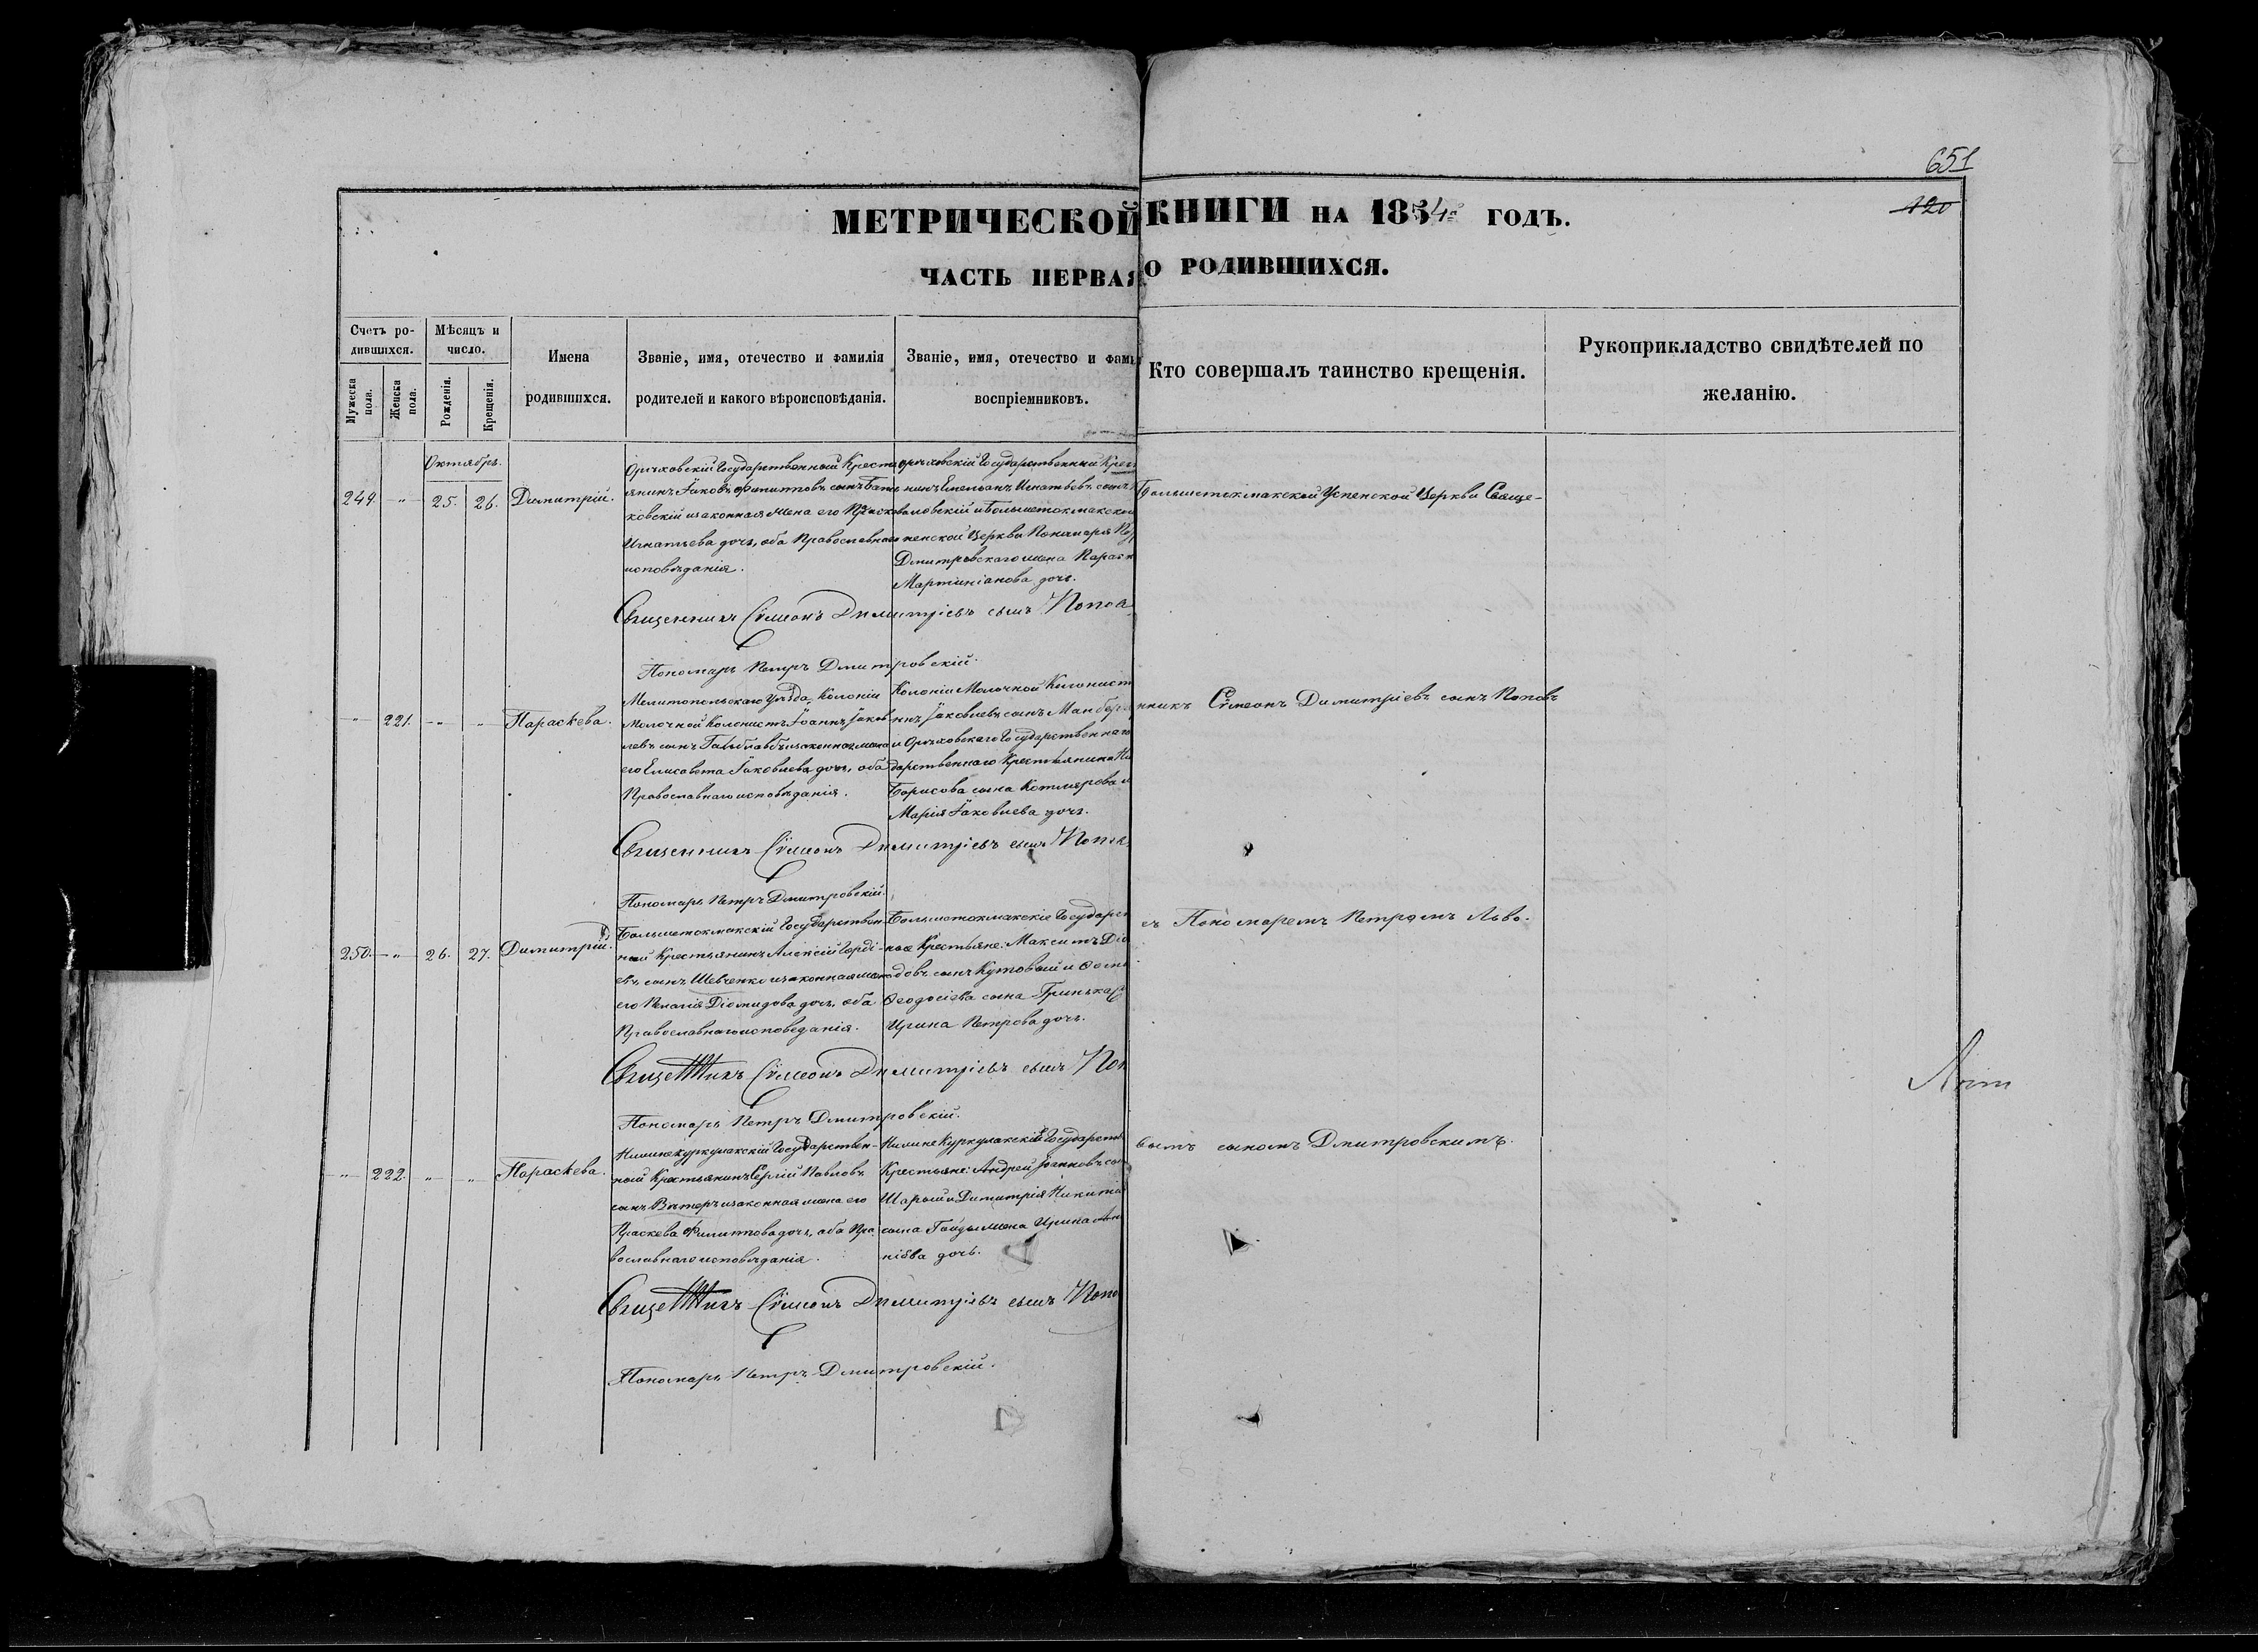 651
120
МЕТРИЧЕСКОЙ КНИГИ НА 1854 ГОДЪ.
ЧАСТЬ ПЕРВАЯ О РОДИВШИХСЯ.
Счетъ ро-
дившихся.
Мужеска
пола.
Женска
пола.
Мѣсяцъ и
число.
Рожденія.
Крещенія.
Имена
родившихся.
Званіе, имя, отечество и фамилія
родителей и какого вѣроисповѣданія.
Званіе, имя, отечество и фами
воспріемниковъ.
Кто совершалъ таинство крещенія.
Рукоприкладство свидѣтелей по
желанію.
Октябрь.
249. -"- 25. 26. Димитрій.
Орѣховскій Государственный Кресть
янинъ Іаковъ Филипповъ сынъ
ковскій и законная жена его
Игнатьева дочь, оба Православнаго
исповѣданія.
орѣховскій Государственный Крес
нинъ Емельянъ Игнатьевъ сынъ
ловскій и Большетокмакской
пенской Церкви Пономаря
Дмитровскаго жена Параск
Мартиніанова дочь.
Большетокмакской Успенской Церкви Свяще-
Священникъ Сѵмеонъ Димитріевъ сынъ Попов
Пономарь Петръ Дмитровскій.
-"- 221. -"- " Параскева.
Мелитопольскаго Уѣзда, Колоніи
Молочной Колонистъ Іоаннъ Іаков
левъ сынъ и законная жена
его Елисавета Іаковлева дочь, оба
Православнаго исповѣданія.
Колоніи Молочной Колонист
Іаковлевъ сынъ
и Орѣховскаго Государственнаго
дарственнаго Крестьянина
Борисова сына Котлярова
Марія Іаковлева дочь.
нникъ Сѵмеонъ Димитріевъ сынъ Поповъ
Священникъ Сѵмеонъ Димитріевъ сынъ Попов
Пономарь Петръ Дмитровскій.
250. -"- 26. 27. Димитрій.
Большетокмакскій Государствен-
ный Крестьянинъ Алексій Горді-
евъ сынъ Шевченко и законная жена
его Пелагія Діомидова дочь, оба
Православнаго исповеданія.
Большетокмакскіе Государст
ные Крестьяне: Максимъ Діо
довъ сынъ Кутовый и
Ѳеодосіева сына Гринька
Ирина Петрова дочь.
съ Пономаремъ Петромъ Льво-
Священникъ Сѵмеонъ Димитріевъ сынъ Поп
Пономарь Петръ Дмитровскій.
-"- 222. -"- " Параскева.
Нижнекуркулакскій Государствен-
ный Крестьянинъ Сергій Павловъ
сынъ Вѣтеръ и законная жена его
Праскева Филиппова дочь, оба Пра-
вославнаго исповѣданія.
Нижнекуркулакскіе Государств
Крестьяне: Андрей Іоанновъ сы
Шарый и Димитрія Никити
сына Гайды жена Ирина
дочь.
вымъ сыномъ Дмитровскимъ.
Священникъ Сѵмеонъ Димитріевъ сынъ Попо
Пономарь Петръ Дмитровскій.